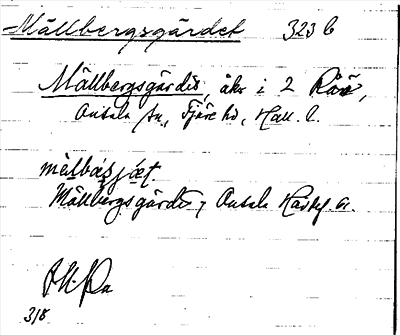 Mällbergsgärdet 323 b
Mällbergsgärdet, åker i 2 Råö,
Onsala sn, Fjäre hd, Hall. l.
mälbasjæt.
Mällbergsgärdet, Onsala
318